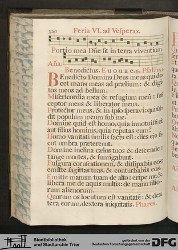 Feria VI. ad Vesperas.
Portio mea Dñe sit in terra viventium
Benedictus. E u o u a e. Psal.
Benedictus Dominus Deus meus qui docet
manus meas ad prælium: & digi-
tos meos ad bellum.
Misericordia mea & refugium meum: sus-
ceptor meus & liberator meus.
Protector meus, & in ipso speravi: qui sub-
dit populum meum sub me.
Domine quid est homo, quia innotuisti ei:
aut filius hominis, quia reputas eum.
Homo vanitati similis factus est: dies ejus si-
cut umbra prætereunt.
Domine inclina cælos tuos & descende:
tange montes, & fumigabunt.
Fulgura coruscationem, & dissipabis eos:
emitte sagittas tuas, & conturbabis eos.
Emitte manum tuam de alto: eripe me, &
libera me de aquis multis: de manu filiorum
alienorum.
Quorum os locutum est vanitatem: & dex-
tera eorum dextera iniquitatis.
Stadtbibliothek
und Stadtarchiv Trier
GEFÖRDERT VON
DFG